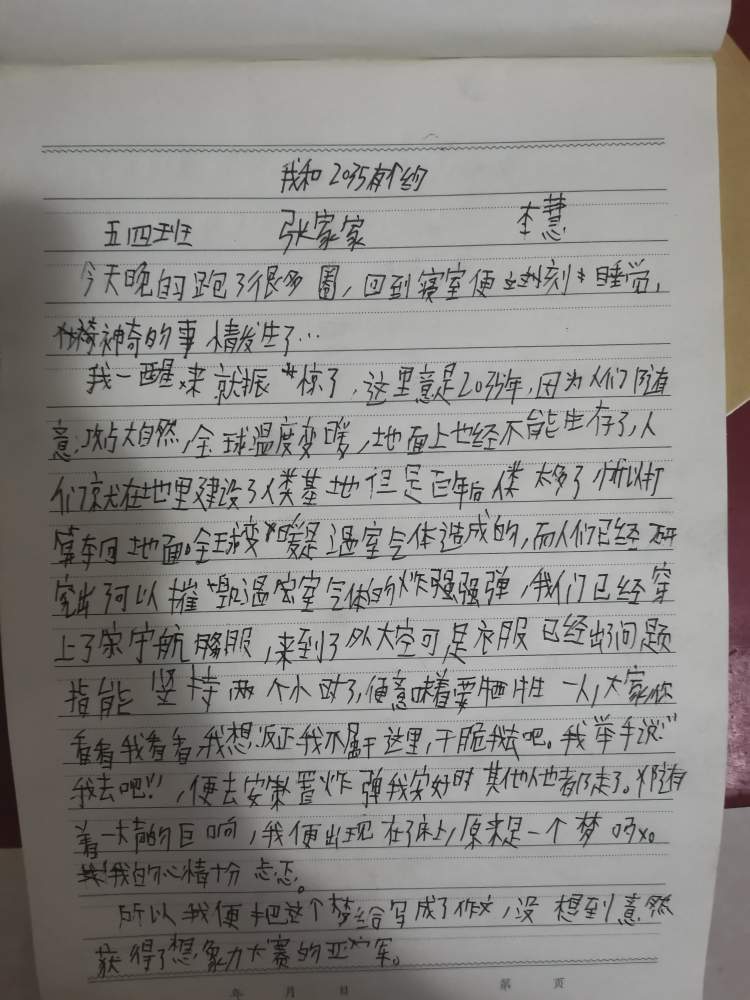 我和2035有个约
五四班 张家家 李慧
今天晚的跑了很多圈，回到寝室便立刻睡觉，
神奇的事情发生了…
我一醒来就振惊了，这里意是2035年，因为人们随
意攻占大自然，全球温度变暖，地面上也经不能生存了，人
们就在地里建设了人类基地但是百年后人类太多了，所以打
算车回地面。全球变暖是温室气体造成的，而人们已经研
究出了可以摧毁温室气体的炸弹，我们已经穿
上了宇航服，来到了外太空可是衣服已经出了问题
指能坚持两个小时了，便意味着要牺牲一人，大家你
看看我看看，我想反正我不属于这里，干脆我去吧。我举手说：“
我去吧！”，便去安置炸弹我安好时其他人也都走了。伴随
着一大声的巨响，我便出现在了床上，原来是一个梦呀。
我的心情十分忐忑。
所以我便把这个梦给写成了作文，没想到意然
获得了想象力大赛的亚军。
年 月 日 第 页